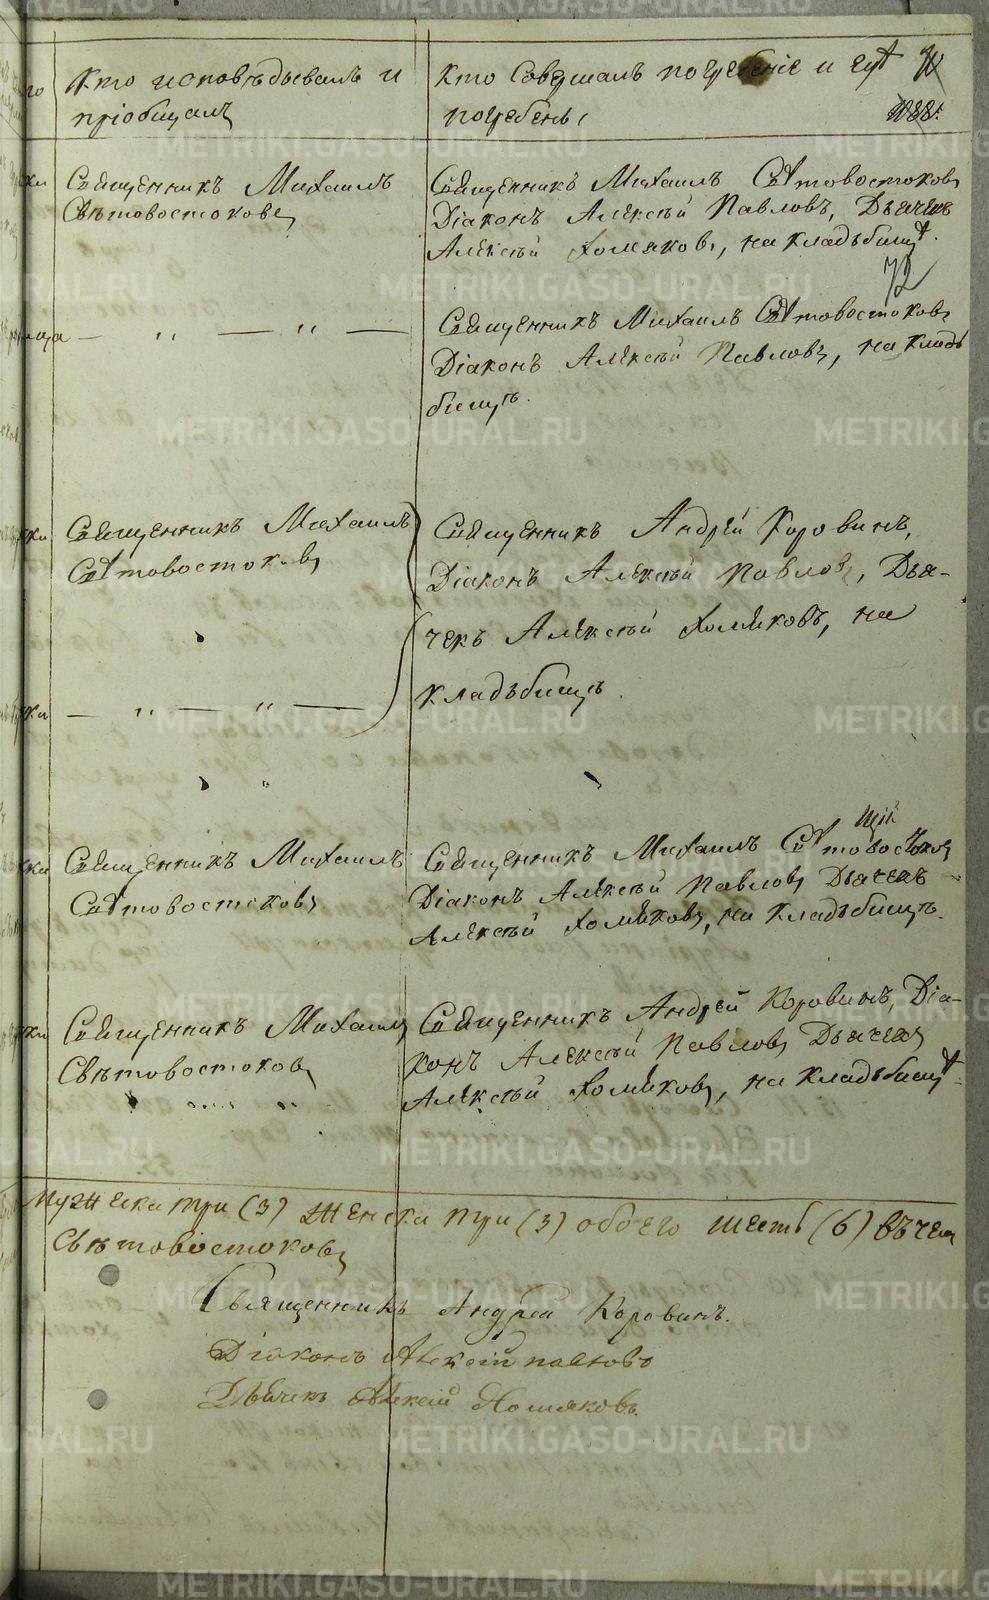 Кто исповѣдывалъ и
пріобщалъ
Кто совершалъ погребеніе и гдѣ
погребены
Священникъ Михаилъ
Свѣтовостоковъ
Священникъ Михаилъ Свѣтовостоковъ
Діаконъ Алексѣй Павловъ, Дьячекъ
Алексѣй Хомяковъ, на кладьбищѣ.
72
— „ — „ —
Священникъ Михаилъ Свѣтовостоковъ
Діаконъ Алексѣй Павловъ, на кладь
бищѣ.
Священникъ Михаилъ
Свѣтовостоковъ
— „ — „ —
Священникъ Андрей Коровинъ,
Діаконъ Алексѣй Павловъ, Дья-
чекъ Алексѣй Хомяковъ, на
кладьбищѣ.
Священникъ Михаилъ
Свѣтовостоковъ
Священникъ Михаилъ Свѣтовостоковъ
Діаконъ Алексѣй Павловъ Дьячекъ
Алексѣй Хомяковъ, на кладьбищѣ.
Священникъ Михаилъ
Свѣтовостоковъ
Священникъ Андрей Коровинъ, Діа-
конъ Алексѣй Павловъ Дьячекъ
Алексѣй Хомяковъ, на кладьбищѣ.
Мужеска три (3) женска три (3) обоего шесть (6) въ чем
Свѣтовостоковъ
Священникъ Андрей Коровинъ.
Діаконъ Алексѣй Павловъ
Дьячекъ Алексѣй Хомяковъ.
METRIKI.GASO-URAL.RU